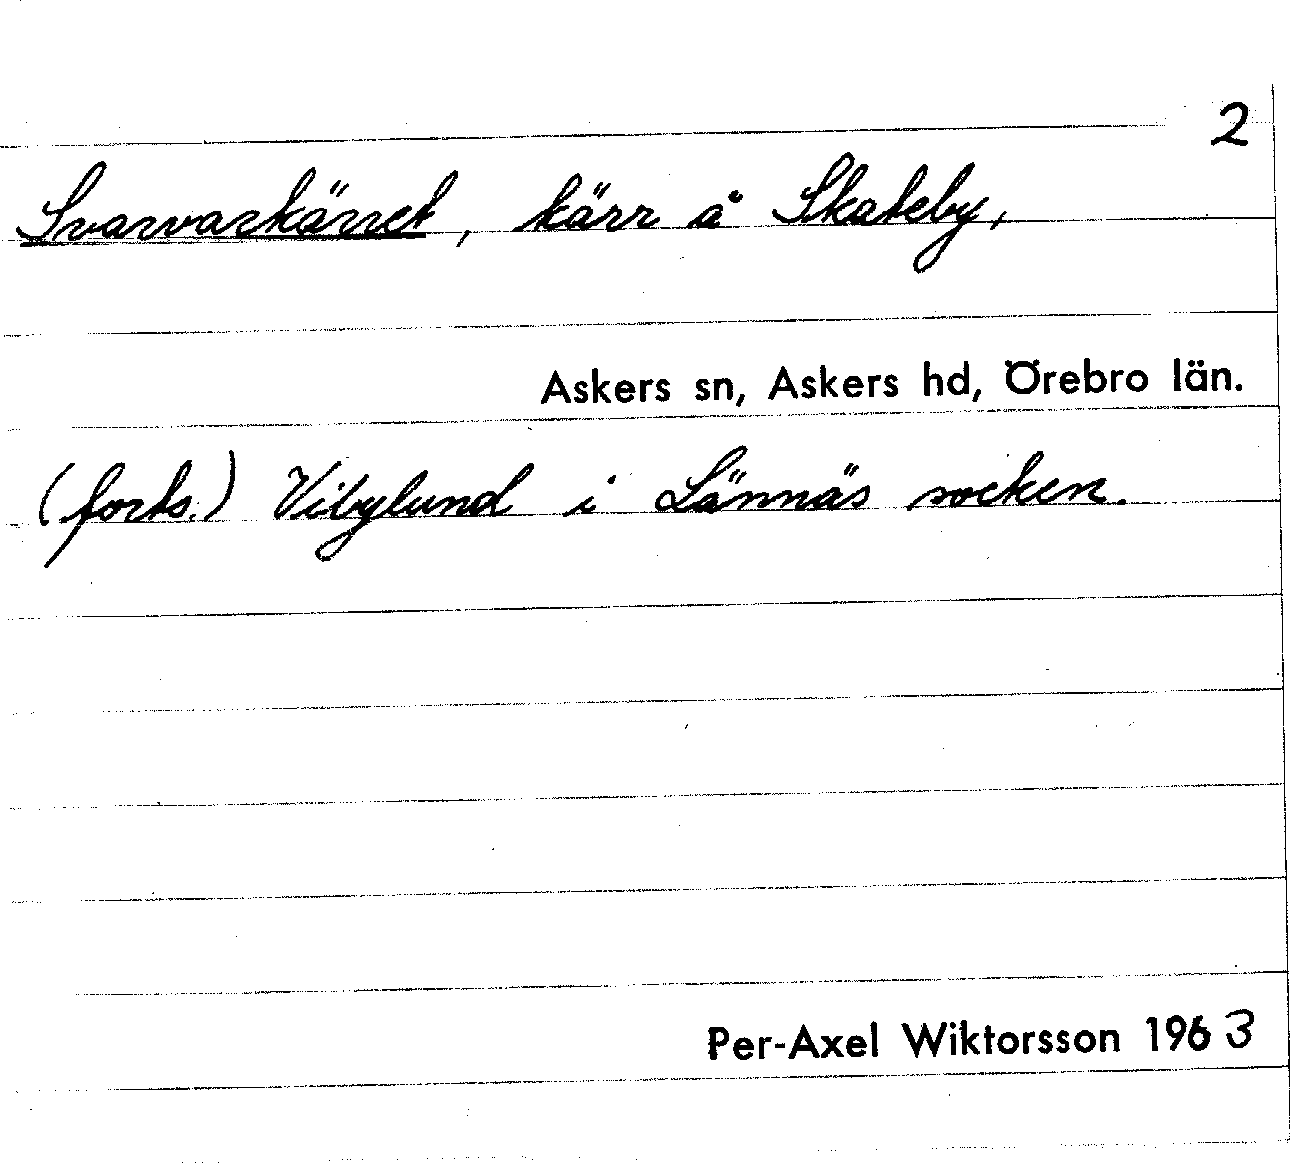 2
Svarvarkärret, kärr å Skateby,
Askers sn, Askers hd, Örebro län.
(forts.) Vibylund i Lännäs socken.
Per-Axel Wiktorsson 1963